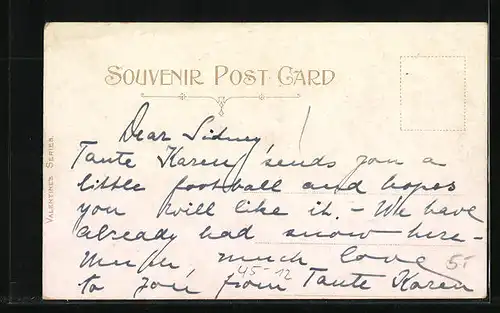 SOUVENIR POST CARD
VALENTINE'S SERIES.
Dear Sidney
Tante Karen sends you a
little football and hopes
you will like it. - We have
already had snow here -
Much, much love
to you from Tante Karen
45-12
5-